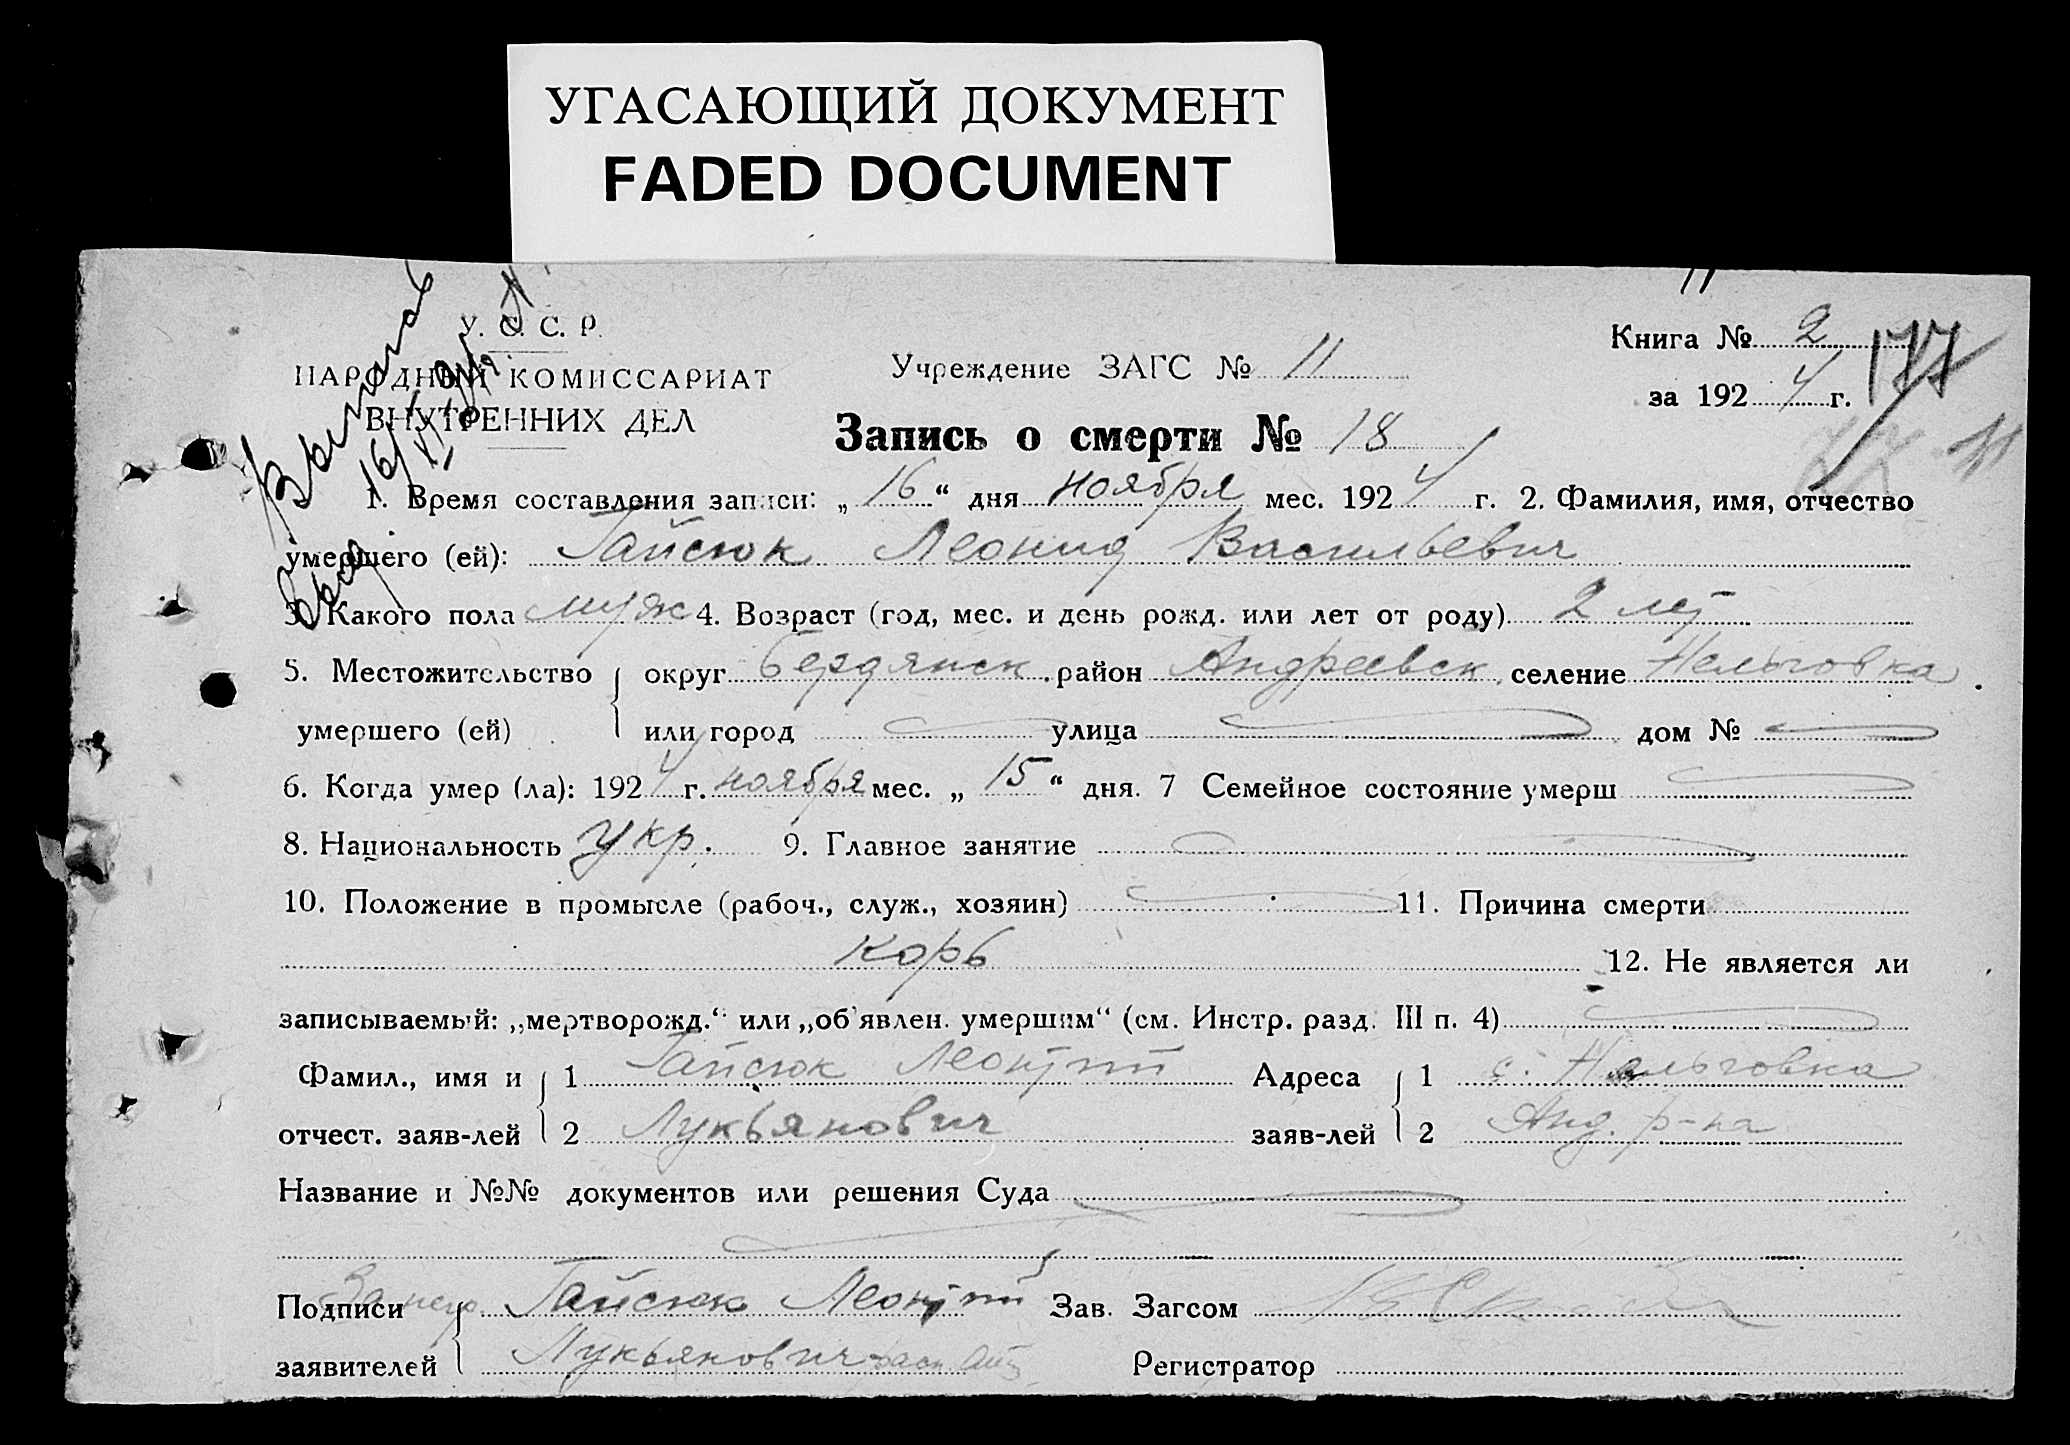 УГАСАЮЩИЙ ДОКУМЕНТ
FADED DOCUMENT
У. С. С. Р.
НАРОДНЫЙ КОМИССАРИАТ
ВНУТРЕННИХ ДЕЛ
Учреждение ЗАГС № 11
Книга № 2
за 1924 г.
177
Запись о смерти № 18
1. Время составления записи: „16“ дня ноября мес. 1924 г. 2. Фамилия, имя, отчество
умершего (ей): Гайсюк Леонид Васильевич
3. Какого пола муж 4. Возраст (год, мес. и день рожд. или лет от роду) 2 лет
5. Местожительство { округ Бердянск, район Андреевск, селение Нельговка.
умершего (ей) или город улица дом №
6. Когда умер (ла): 1924 г. ноября мес. „15“ дня. 7 Семейное состояние умерш
8. Национальность укр. 9. Главное занятие
10. Положение в промысле (рабоч., служ., хозяин) 11. Причина смерти
корь 12. Не является ли
записываемый: „мертворожд.“ или „об'явлен. умершим“ (см. Инстр. разд. III п. 4)
Фамил., имя и { 1 Гайсюк Леонтий Адреса { 1 с. Нельговка
отчест. заяв-лей 2 Лукьянович заяв-лей 2 Анд. р-на
Название и №№ документов или решения Суда
Подписи { Гайсюк Леонтий Зав. Загсом
заявителей Лукьянович Регистратор